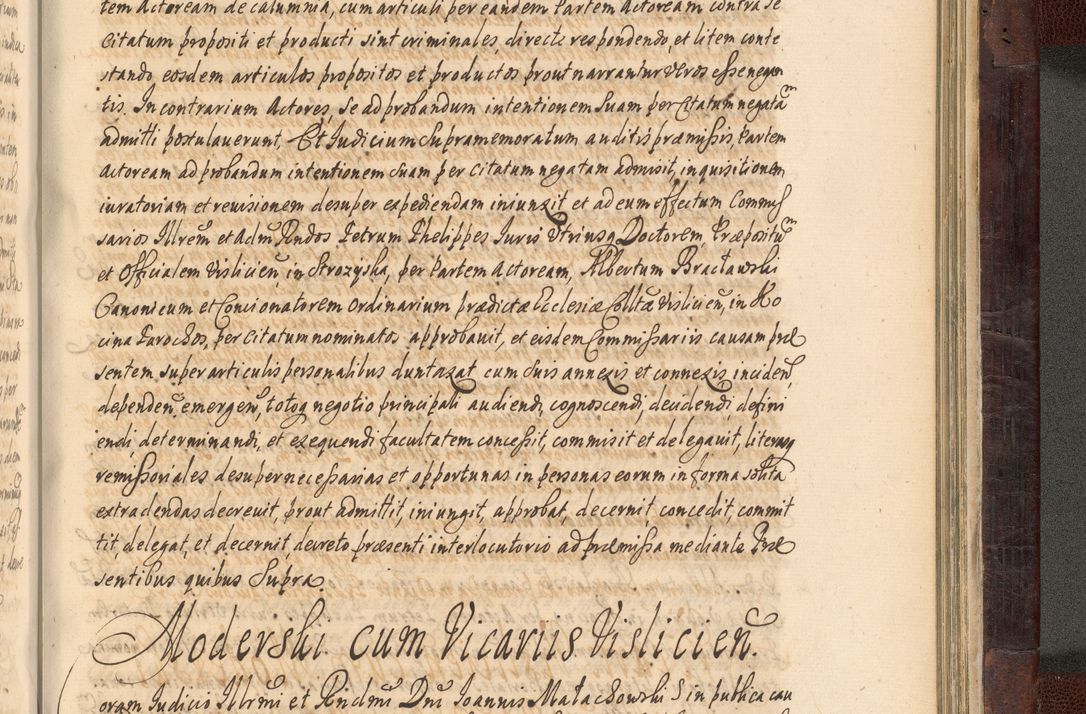 tem Actoream de calumnia, cum articuli per eandem Partem Actoream contra se
Citatum propositi et producti sint criminales, directe respondendo, et litem conte
stando, eosdem articulos propositos et productos prout narrantur veros esse negan
tis. In contrarium Actores, se ad probandum intentionem suam per Citatum negatam
admitti postulauerunt, Et Iudicium supramemoratum auditis præmissis, Partem
Actoream ad probandum intentionem suam per Citatum negatam admisit, inquisitionem
iuratoriam et reuisionem desuper expediendam iniunxit et ad eum effectum Commis
sarios Illrem et Adm Rndos Petrum Phelippes Iuris Vtriusq Doctorem, Præpositum
et Officialem Vislicien, in Strozyska, per Partem Actoream, Albertum Bractawski
Canonicum et Concionatorem ordinarium prædictæ Ecclesiæ Colltæ Vislicien, in Ko
cina Parochos, per Citatum nominatos approbauit, et eisdem Commissariis causam præ
sentem super articulis personalibus duntaxat cum suis annexis et connexis, inciden,
dependen, emergen, totoq negotio principali audiendi, cognoscendi, decidendi defini
endi, determinandi, et exequendi facultatem concessit, commisit et delegauit, literasq
remissoriales desuper necessarias et opportunas in personas eorum in forma solita
extradendas decreuit, prout admittit, iniungit, approbat, decernit concedit, commit
tit, delegat, et decernit, decreto præsenti interlocutorio ad præmissa mediante Præ
sentibus quibus Supra
Moderski cum Vicariis Vislicien.
oram Iudicio Illrmi et Rndmi Dni Ioannis Małachowski S in publica cau